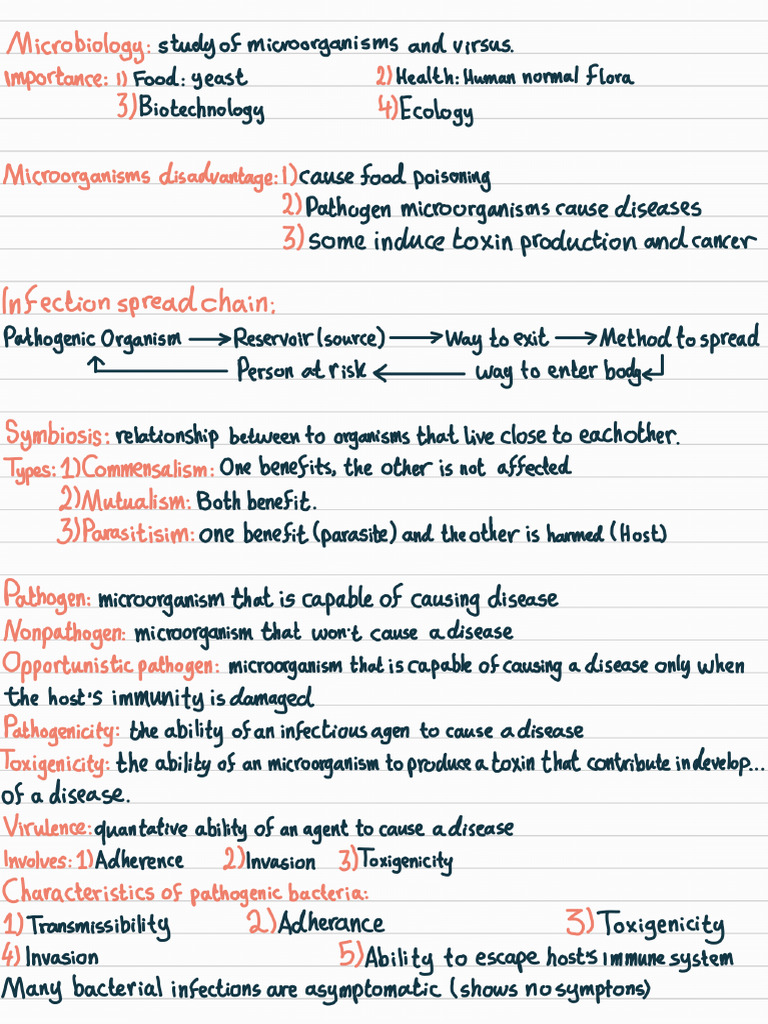 Microbiology: study of microorganisms and virsus.
Importance: 1) Food: yeast 2) Health: Human normal flora
3) Biotechnology 4) Ecology
Microorganisms disadvantage: 1) cause food poisoning
2) Pathogen microorganisms cause diseases
3) some induce toxin production and cancer
Infection spread chain:
Pathogenic Organism → Reservoir (source) → Way to exit → Method to spread
Person at risk ← way to enter body
Symbiosis: relationship between to organisms that live close to eachother.
Types: 1) Commensalism: One benefits, the other is not affected
2) Mutualism: Both benefit.
3) Parasitisim: one benefit (parasite) and the other is harmed (Host)
Pathogen: microorganism that is capable of causing disease
Nonpathogen: microorganism that won't cause a disease
Opportunistic pathogen: microorganism that is capable of causing a disease only when
the host's immunity is damaged
Pathogenicity: the ability of an infectious agen to cause a disease
Toxigenicity: the ability of an microorganism to produce a toxin that contribute in develop...
of a disease.
Virulence: quantative ability of an agent to cause a disease
Involves: 1) Adherence 2) Invasion 3) Toxigenicity
Characteristics of pathogenic bacteria:
1) Transmissibility 2) Adherance 3) Toxigenicity
4) Invasion 5) Ability to escape host's immune system
Many bacterial infections are asymptomatic (shows no symptons)